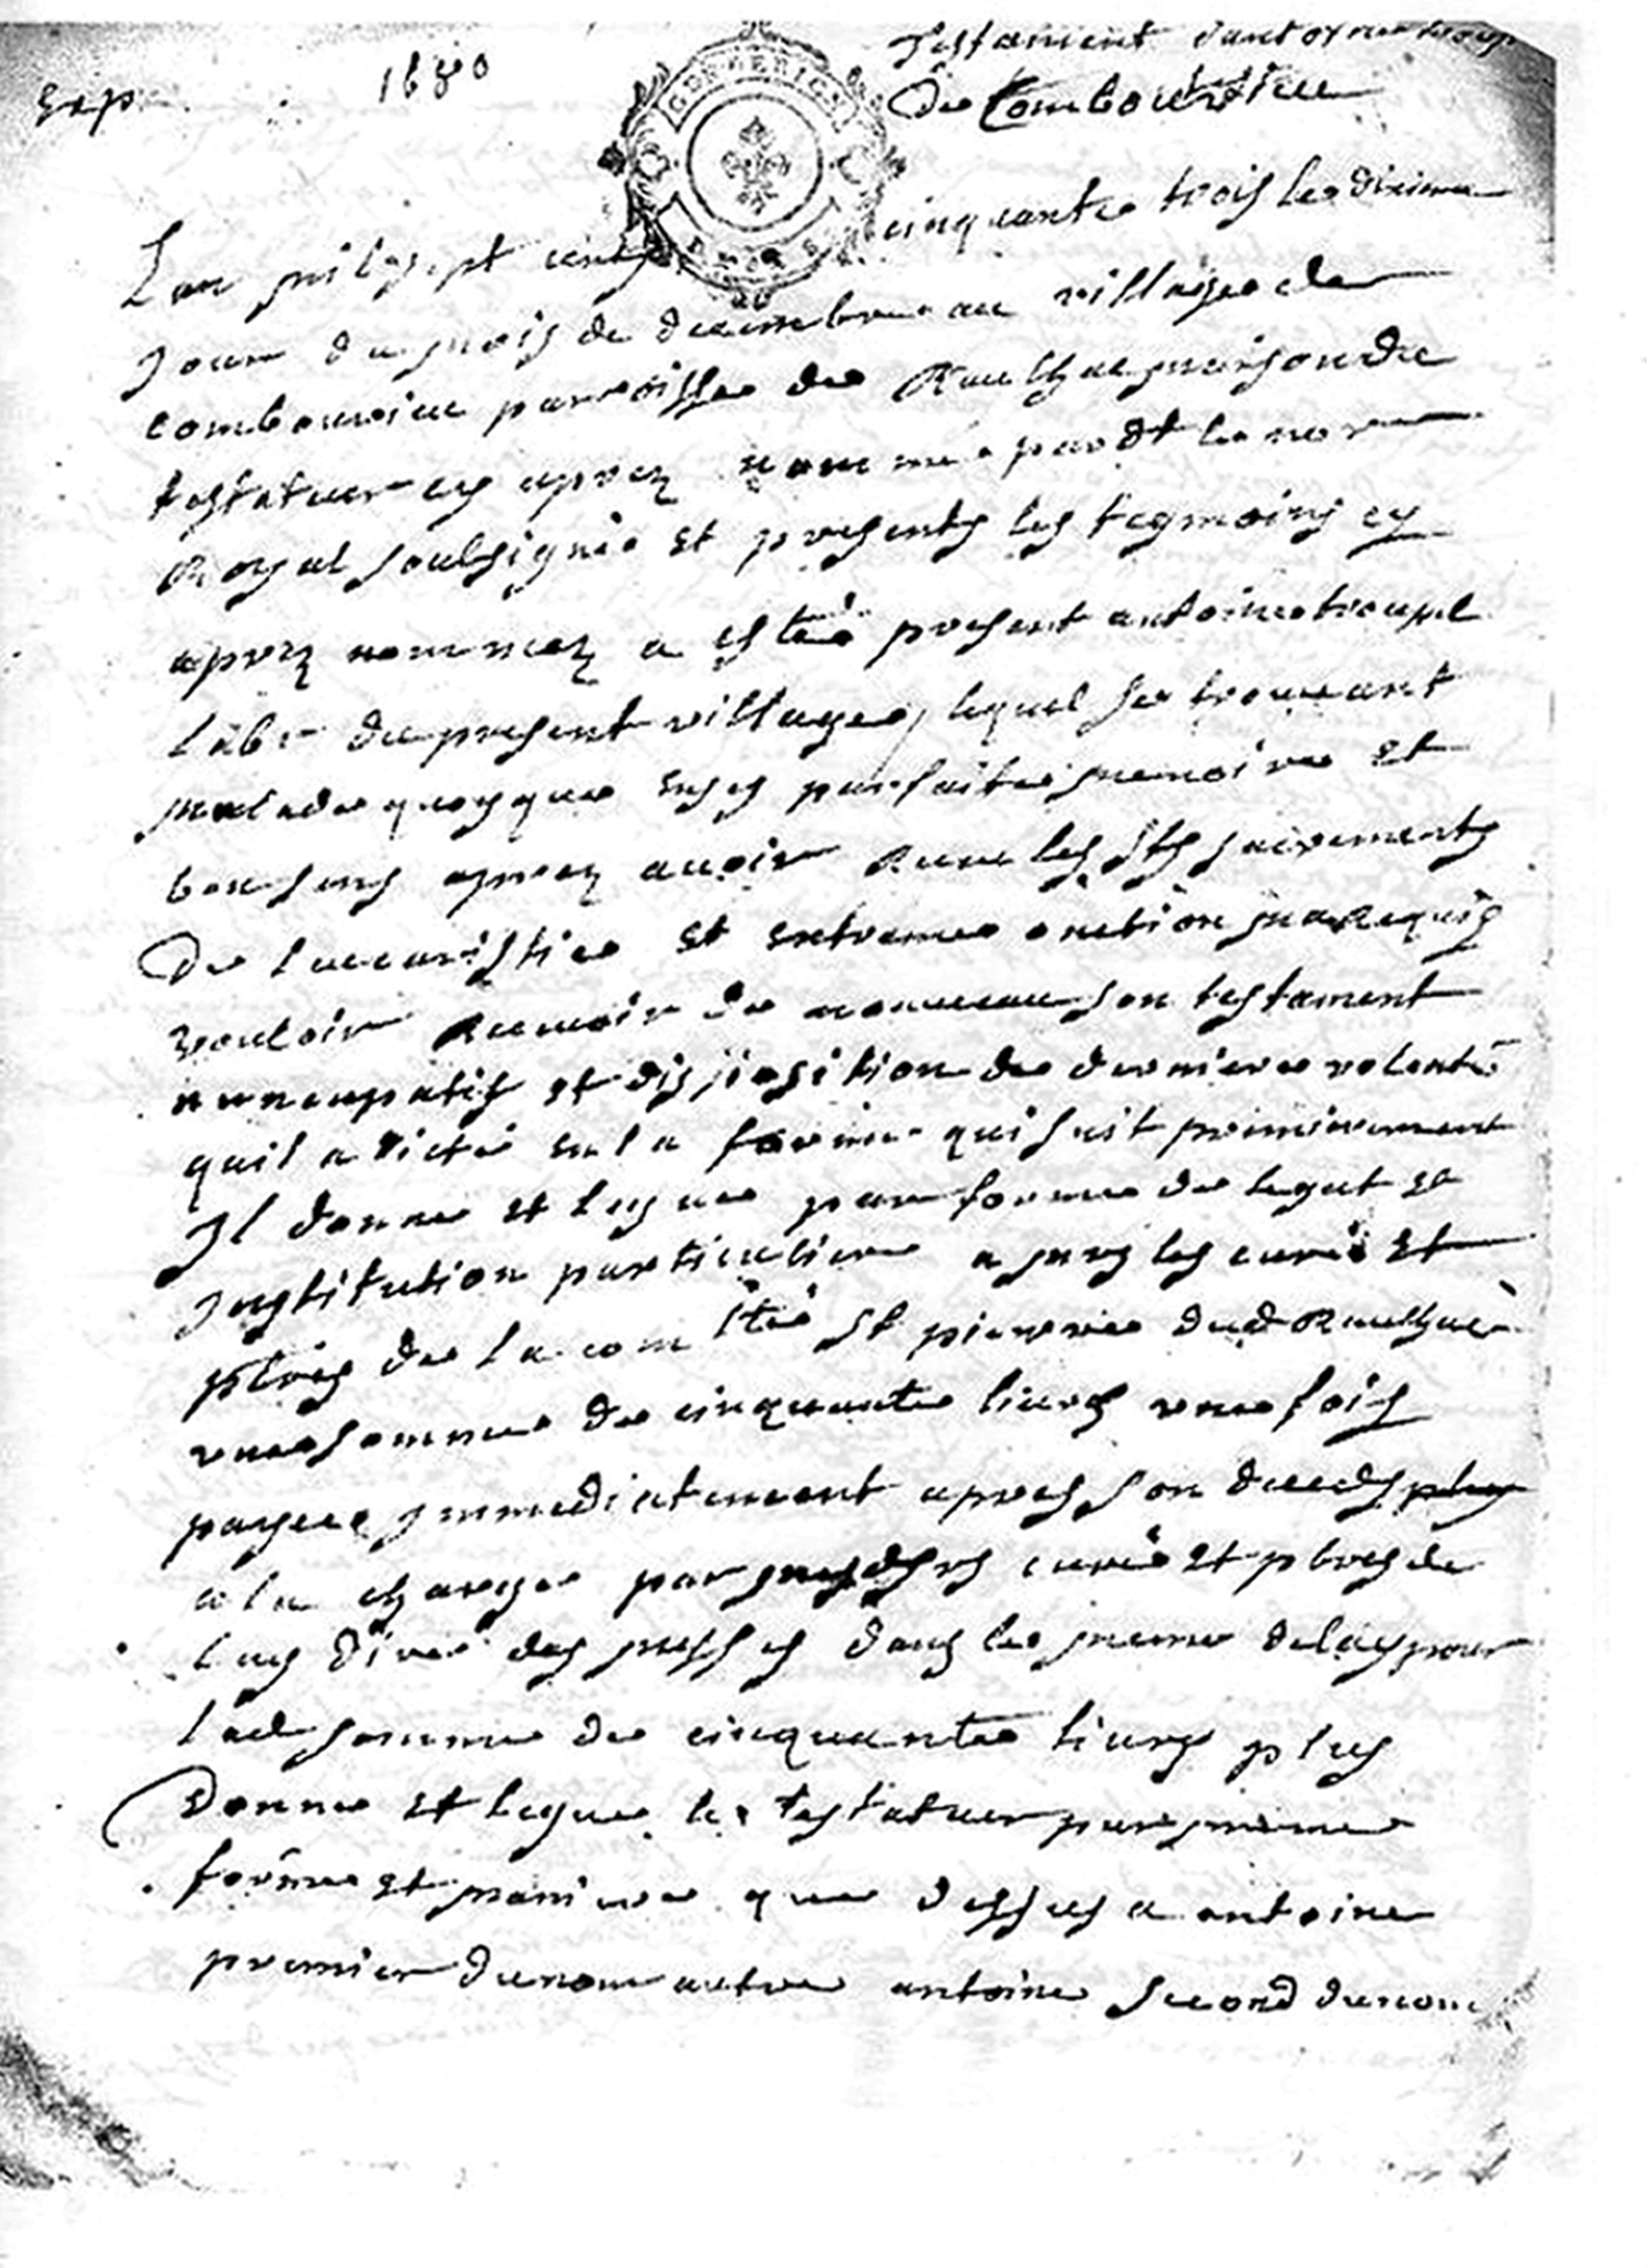 Testament dantoyne troup
Exp 1680 De Comboureieu
GEN DE RION
Lan mil sept cents cinquante trois le dixieme
Jour du mois de decembre au village de
comboureieu parroisse de Raulhac maison du
testateur cy aprez nommé pardt le nore
Royal soubsigné et presents les tesmoins cy
aprez nommez a esté present antoine troupel
labr du present village, lequel se trouvant
malade quoyque en sa parfaite memoire et
bon sens aprez avoir Receu les sts sacrements
De leucaristie et extreme onction ma Requis
vouloir Recevoir de nouveau son testament
nuncupatif et disposition de derniere volonté
quil a dicté en la forme qui suit premierement
Il donne et legue par forme de legat et
Institution particuliere a mrs les curé et
pbres de la com ité St pierre dud Raulhac
une somme de cinquante livres une fois
payee Immediatement apres son deceds plus
a la charge par mesds srs curé et pbres de
luy dire des messes dans le meme delay pour
lad somme de cinquante livres plus
Donne et legue le testateur par meme
forme et maniere que dessus a antoine
premier du nom autre antoine second du nom